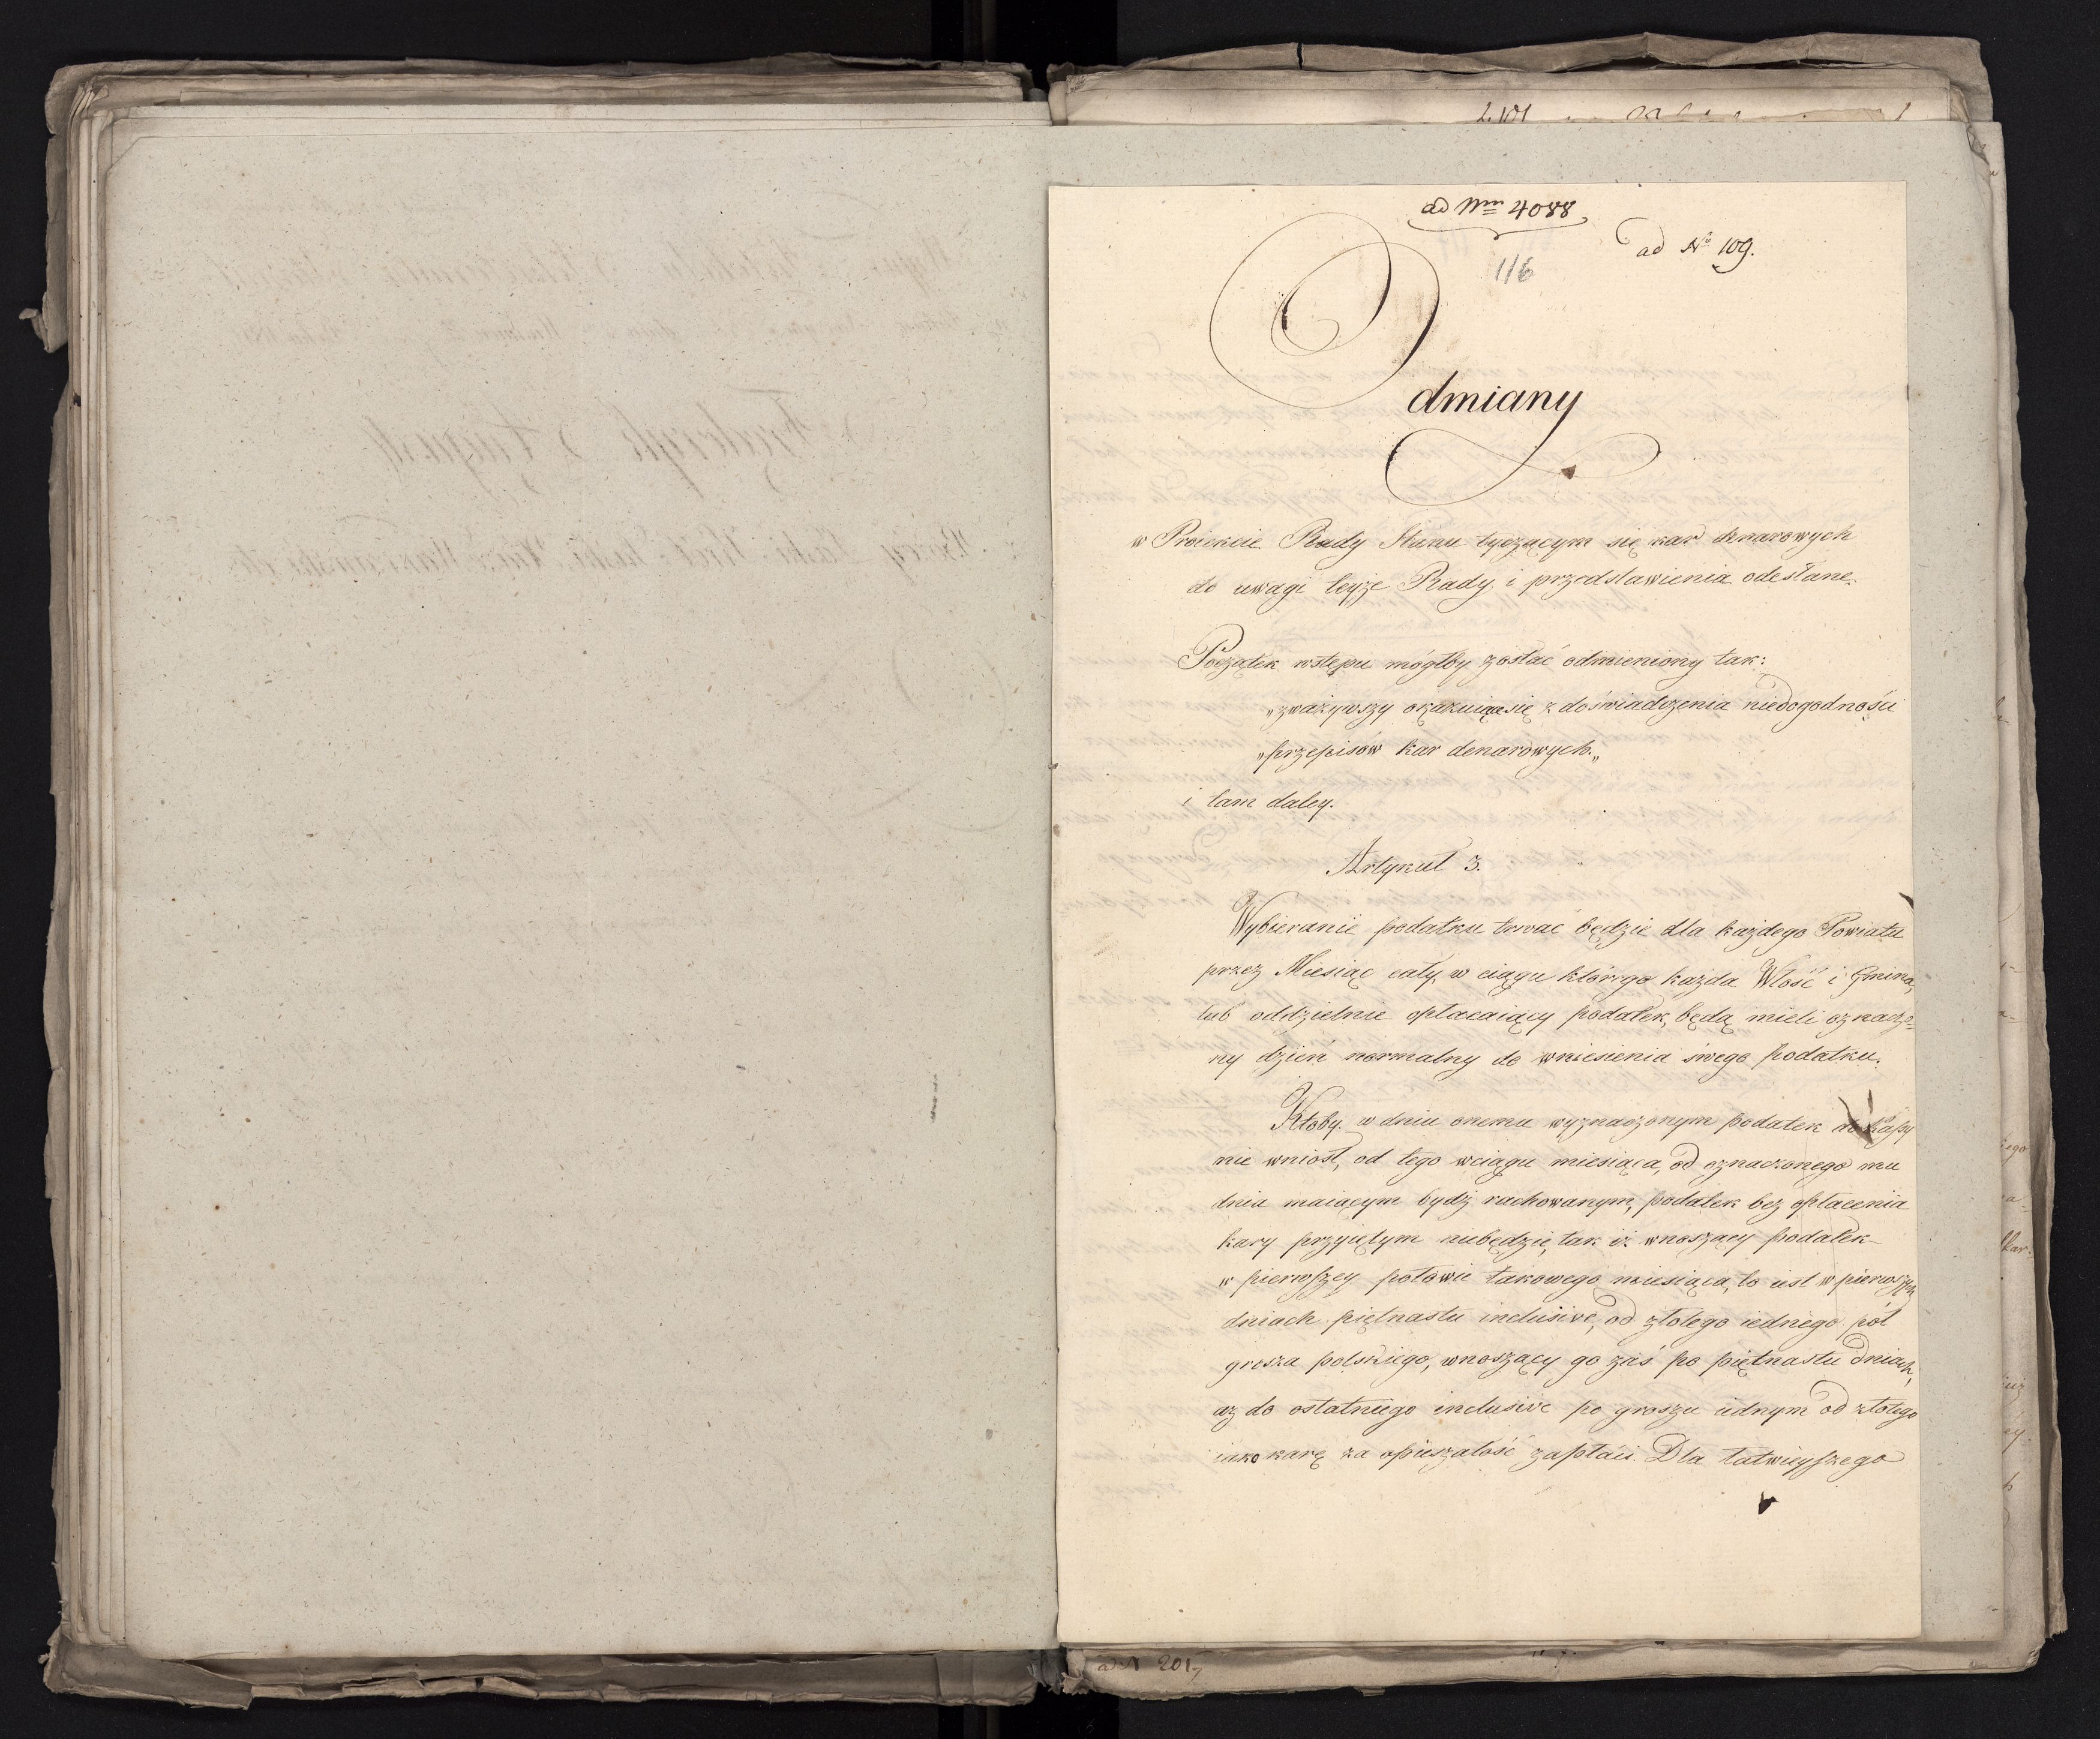 ad Nrm 4088
ad No 109.
116
Odmiany
w Proiekcie Rady Stanu tyczącym się kar denarowych
do uwagi teyże Rady i przedstawienia odesłane.
Początek wstępu mógłby zostać odmieniony tak:
„zważywszy okazuiącesię z doświadczenia niedogodności
„przepisów kar denarowych.„
i tam daley.
Artykuł 3.
Wybieranie podatku trwać będzie dla każdego Powiatu
przez Miesiąc cały, w ciągu którego każda Włość i Gmina,
lub oddzielnie opłacaiący podatek, będą mieli oznaczo=
ny dzień normalny do wniesienia swego podatku.
Ktoby w dniu onemu wyznaczonym podatek do kassy
nie wniosł, od tego wciągu miesiąca, od oznaczonego mu
dnia maiącym bydź rachowanym, podatek bez opłacenia
kary przyiętym niebędzie, tak iż wnoszący podatek
w pierwszey połowie takowego miesiąca, to iest w pierwszych
dniach piętnastu inclusive, od złotego iednego pół
grosza polskiego, wnoszący go zaś po piętnastu dniach,
aż do ostatniego inclusive po groszu iednym od złotego
iako karę za opieszałość zapłaci. Dla łatwieyszego
ad N 201